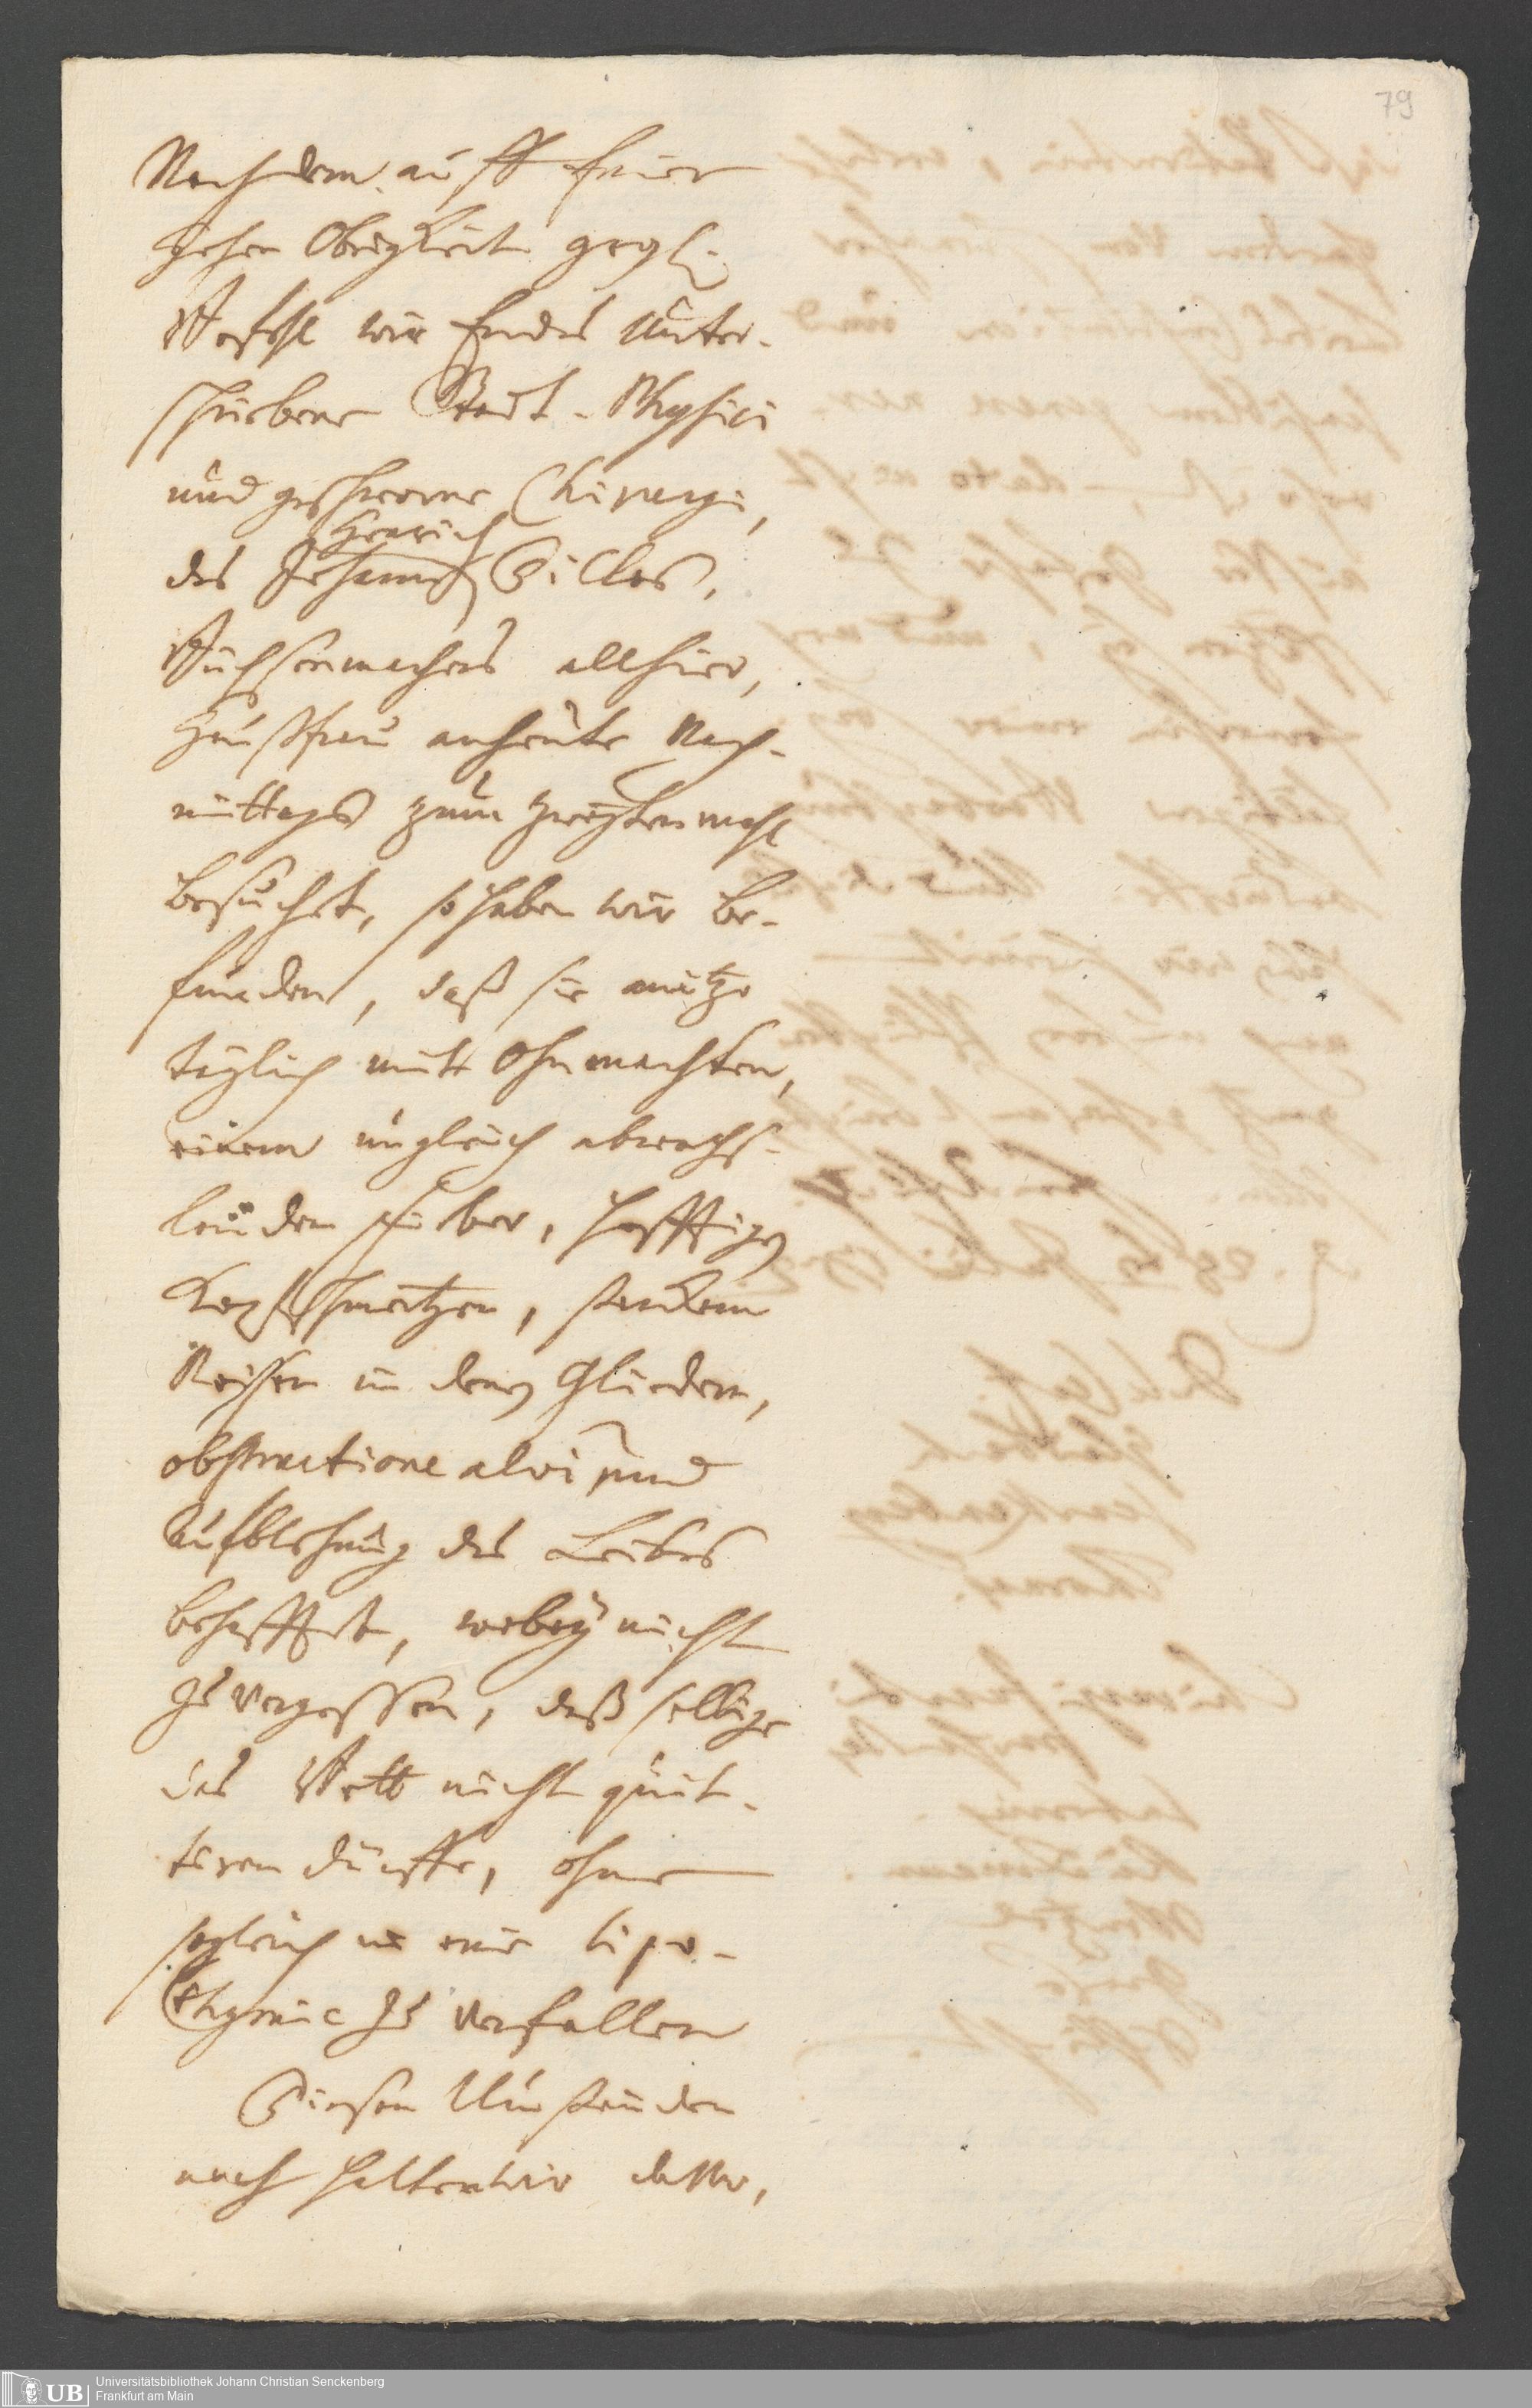 79
Nachdem auff einer
hohen Obrigkeit
Befehl wir Endes Unter-
schriebene Stadt-Physici
und geschworne Chirurgi,
Henrich
des Johann Dilles,
Büchsenmachers allhier,
Haußfrau anheute Nach-
mittags zum zweytenmahl
besuchet, so haben wir be-
funden, daß sie anitzo
täglich mitt Ohnmachten,
einem ungleich abwechs-
lenden fieber, hefftigen
Kopffschmertzen, starckem
Reissen in denen Gliedern,
obstructione alvi und
Aufblehung des Leibes
behafftet, wobey nicht
zu vergessen, daß selbige
das Bett nicht quit-
tiren dürffe, ohne
sogleich in eine Lipo-
thymie zu verfallen
Diesen Umständen
nach halten wir davor,
Universitätsbibliothek Johann Christian Senckenberg
Frankfurt am Main
UB